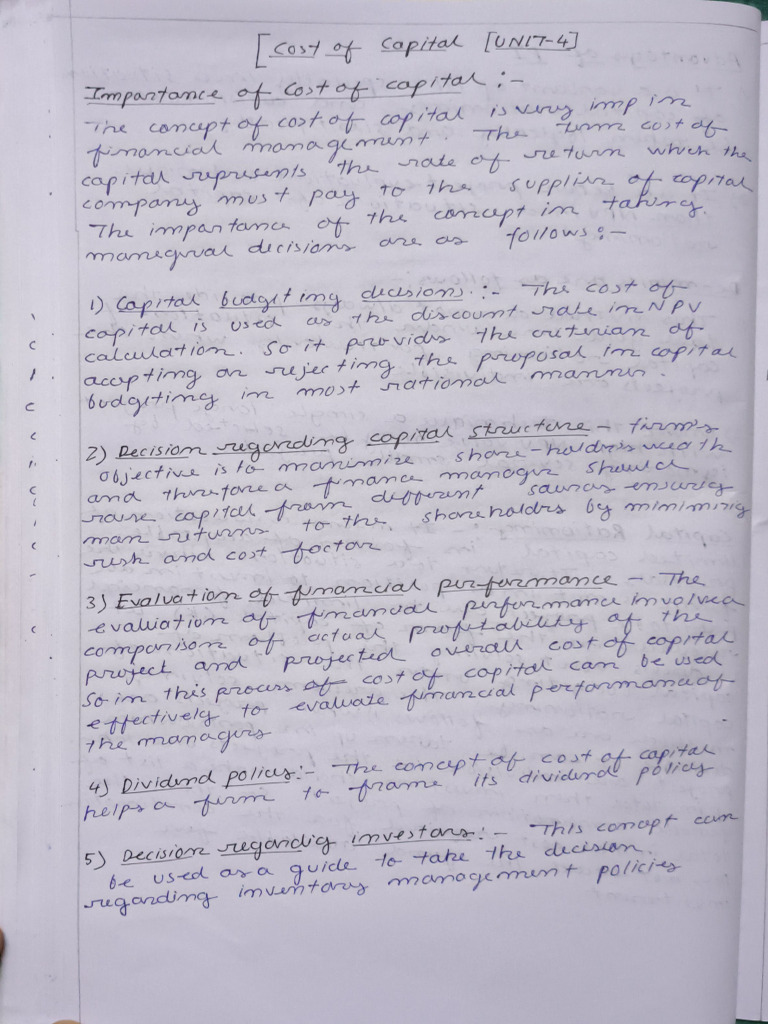 [Cost of Capital [UNIT-4]
Importance of Cost of capital :-
The concept of cost of capital is very imp in
financial management. The term cost of
capital represents the rate of return which the
company must pay to the supplier of capital
The importance of the concept in taking
manegiral decisions are as follows :-
1) Capital budgeting decisions :- The cost of
capital is used as the discount rate in NPV
calculation. So it provides the criterian of
accepting or rejecting the proposal in capital
budgeting in most rational manner.
2) Decision regarding capital structure - firm's
objective is to maximize share-holders wealth
and therefore a finance manager should
raise capital from different sources ensuring
max returns to the shareholders by minimizing
risk and cost factor
3) Evaluation of financial performance - The
evaluation of financial performance involved
comparison of actual profitability of the
project and projected overall cost of capital
So in this process of cost of capital can be used
effectively to evaluate financial performance of
the managers
4) Dividend policy :- The concept of cost of capital
helps a firm to frame its dividend policy
5) Decision regardig investors :- This concept can
be used as a guide to take the decision.
regarding inventory management policies